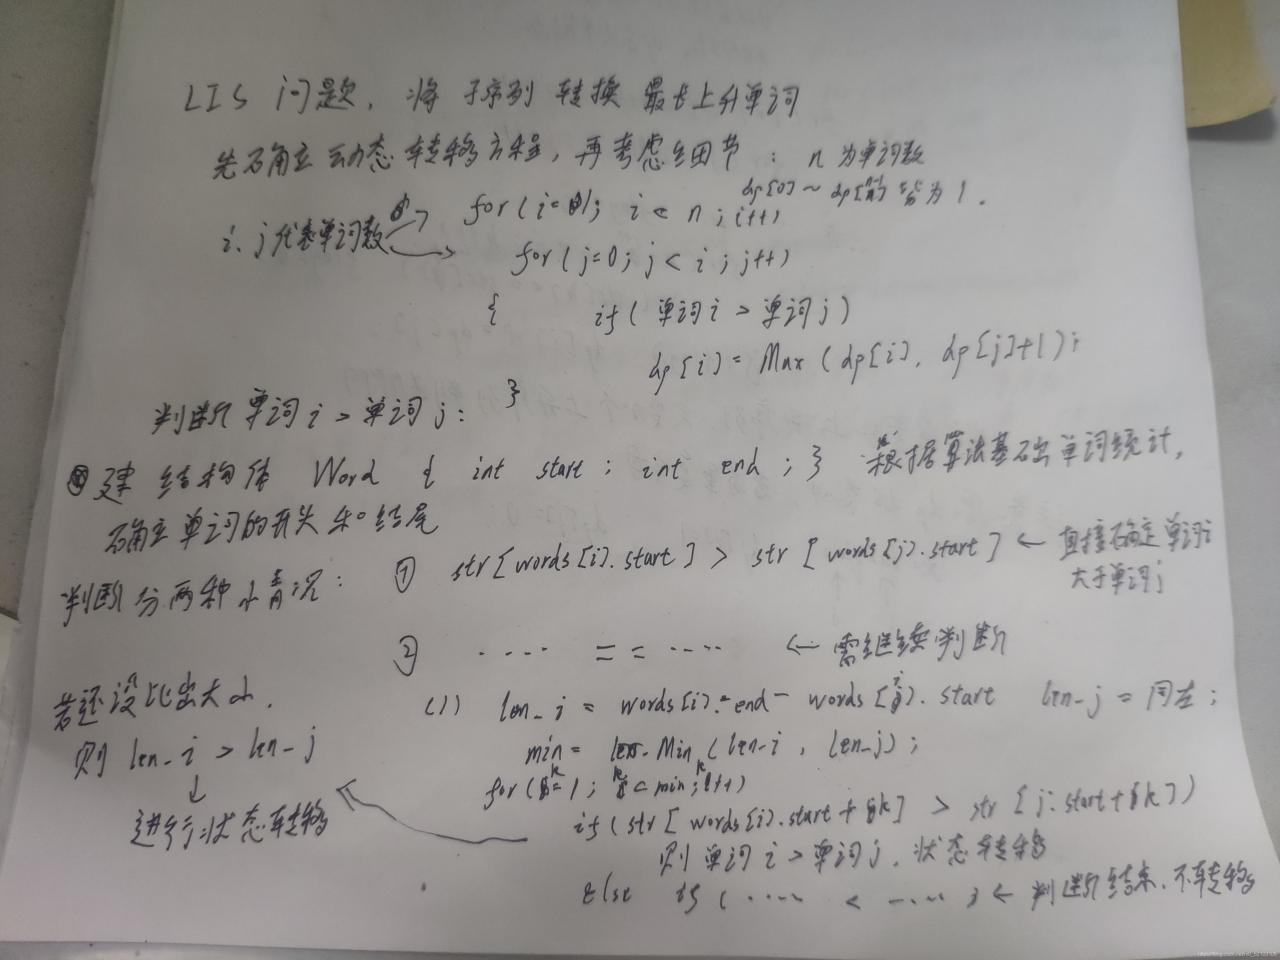 LIS 问题，将子序列转换最长上升单词
先确立动态转移方程，再考虑细节：n为单词数
dp[0] ~ dp[n-1] 皆为1.
for(i=1; i<n; i++)
i、j代表单词数
for(j=0; j<i; j++)
{ if(单词i > 单词j)
dp[i] = Max(dp[i], dp[j]+1);
}
判断单词i > 单词j：
建结构体 Word { int start; int end; } 根据算法基础单词统计，
确立单词的开头和结尾
判断分两种情况：
① str[words[i].start] > str[words[j].start] ← 直接确定单词i
大于单词j
② ···· == ···· ← 需继续判断
(1) len_i = words[i].end - words[i].start len_j = 同左;
min = Min(len_i, len_j);
for(k=1; k<min; k++)
if(str[words[i].start+k] > str[j.start+k])
则单词i>单词j，状态转移
else if(···· < ····) ← 判断结束，不转移
若还没比出大小，
则 len_i > len_j
↓
进行状态转移